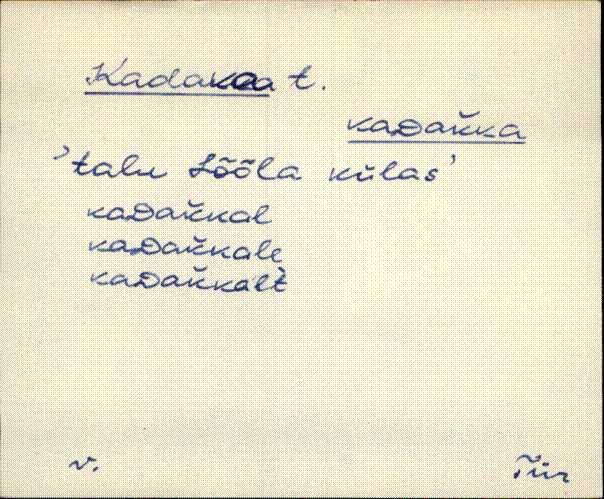 Kadakaa t.
kaDak̆ka
'talu Sõõla külas'
kaDak̆kal
kaDak̆kale
kaDak̆kalt̀
v.
Tür